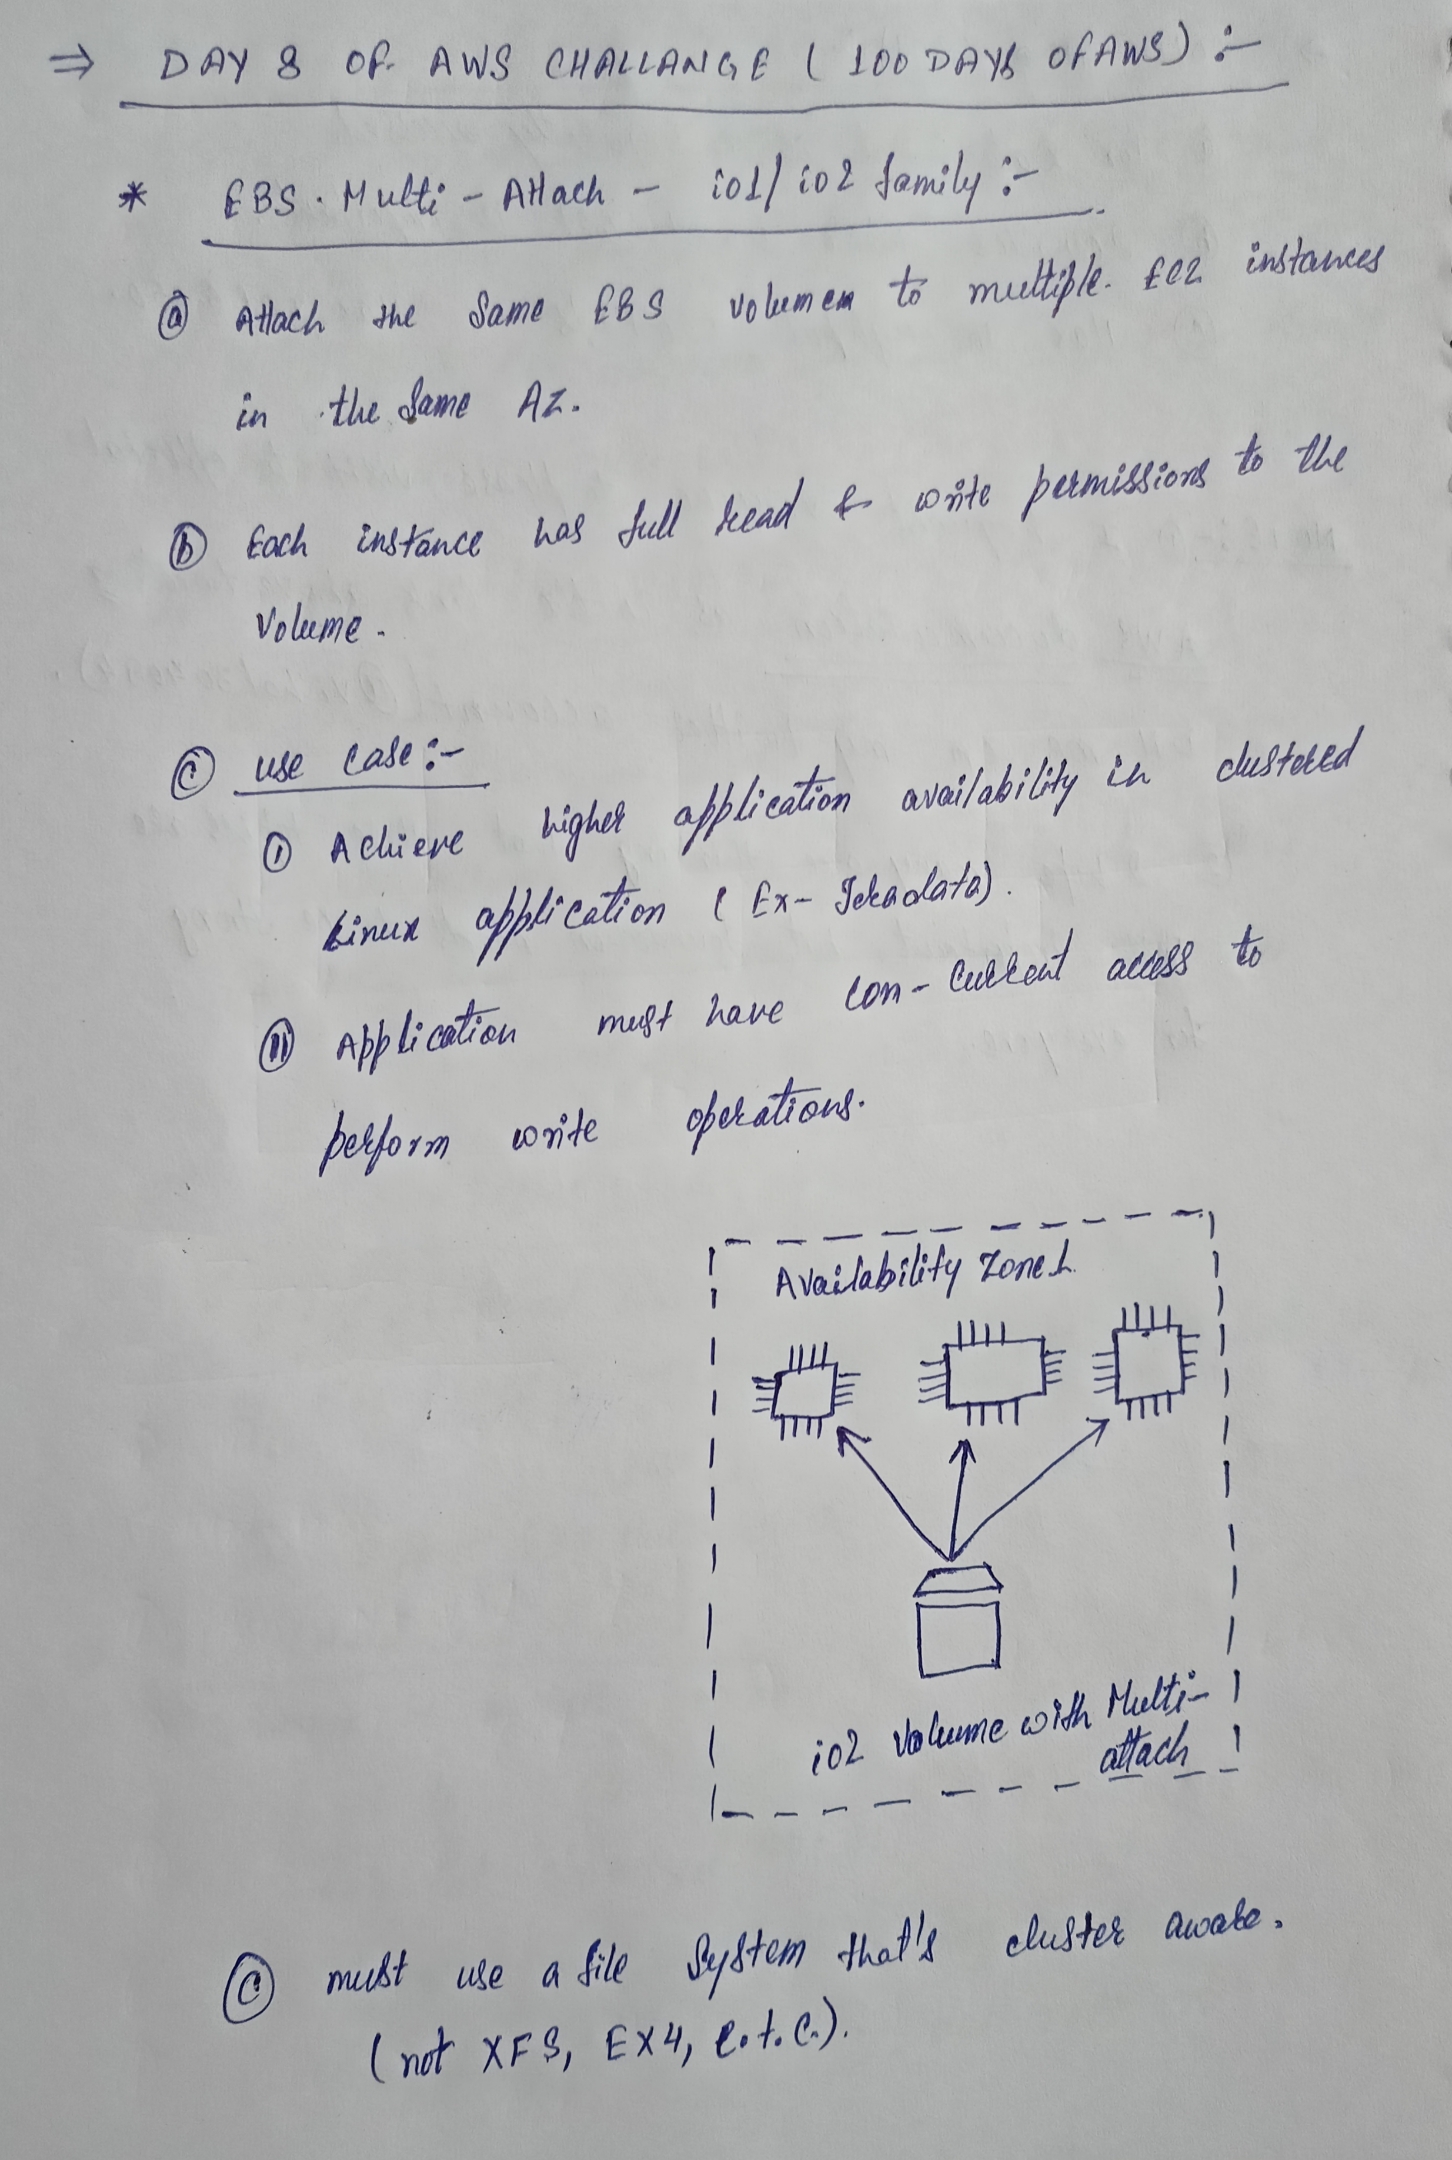 ⇒ DAY 8 OF AWS CHALLANGE ( 100 DAYS OF AWS) :-
* EBS Multi - Attach - io1/io2 family :-
(a) Attach the same EBS volumem to multiple EC2 instances
in the same AZ.
(b) Each instance has full read & write permissions to the
volume.
(c) use case :-
(i) Achieve higher application availability in clustered
Linux application ( Ex- Teradata).
(ii) Application must have con-current access to
perform write operations.
Availability Zone 1
io2 volume with Multi-
attach
(c) must use a file system that's cluster aware.
( not XFS, EX4, e.t.c.).